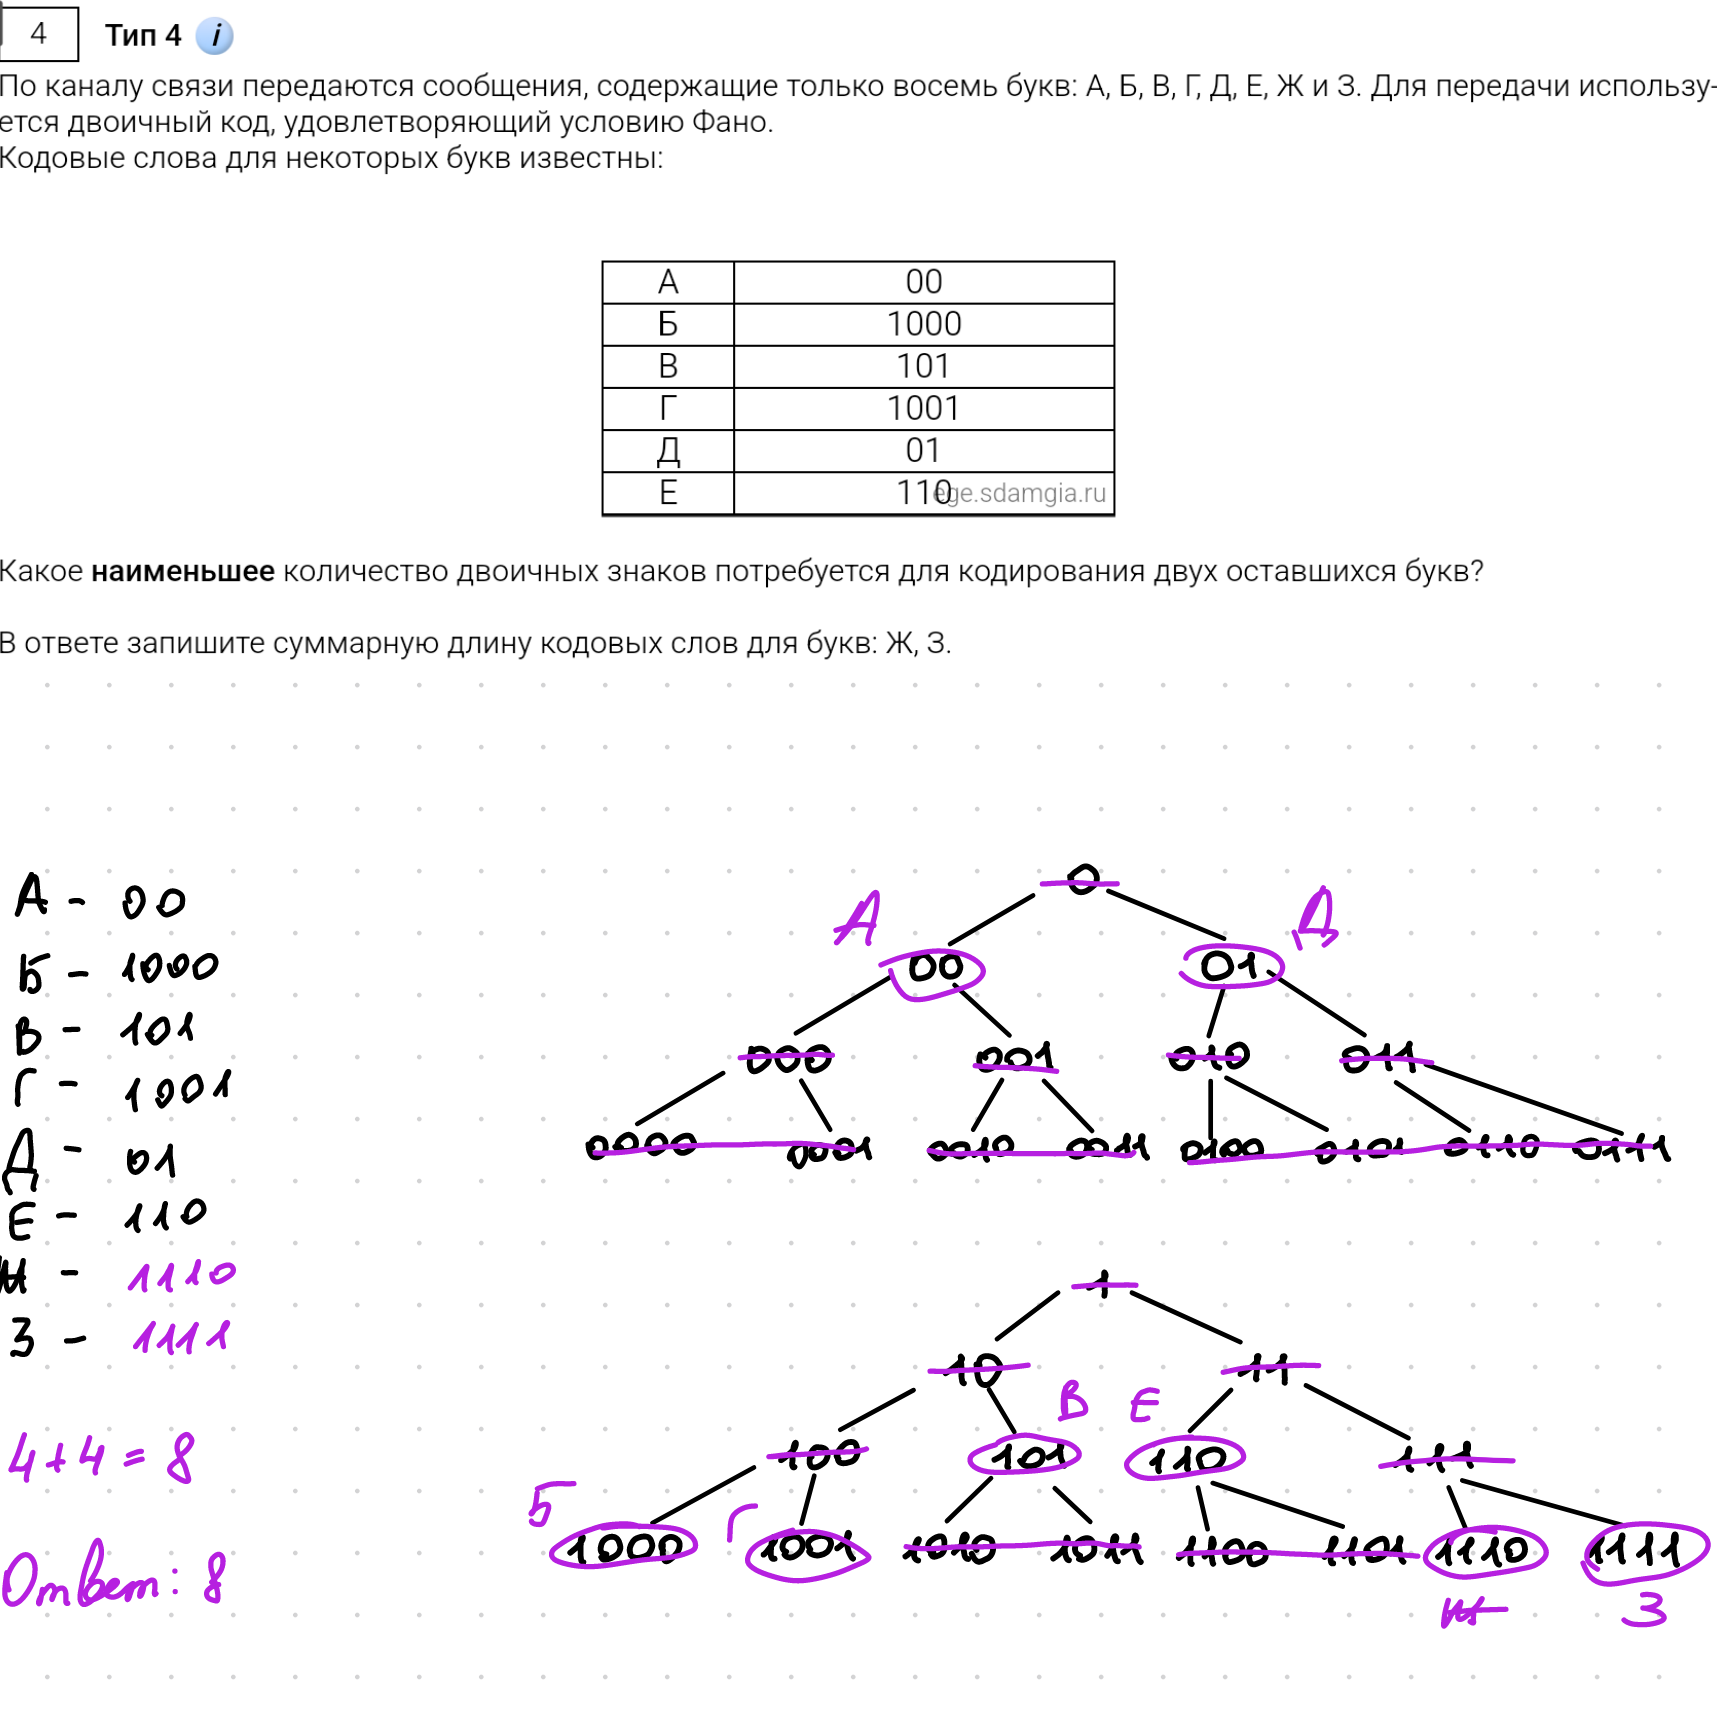 4 Тип 4 i
По каналу связи передаются сообщения, содержащие только восемь букв: А, Б, В, Г, Д, Е, Ж и З. Для передачи использу-
ется двоичный код, удовлетворяющий условию Фано.
Кодовые слова для некоторых букв известны:
А 00
Б 1000
В 101
Г 1001
Д 01
Е 110
ege.sdamgia.ru
Какое наименьшее количество двоичных знаков потребуется для кодирования двух оставшихся букв?
В ответе запишите суммарную длину кодовых слов для букв: Ж, З.
А - 00
Б - 1000
В - 101
Г - 1001
Д - 01
Е - 110
Ж - 1110
З - 1111
4+4=8
Ответ: 8
0
А Д
00 01
000 001 010 011
0000 0001 0010 0011 0100 0101 0110 0111
1
10 11
В Е
100 101 110 111
Б Г
1000 1001 1010 1011 1100 1101 1110 1111
Ж З